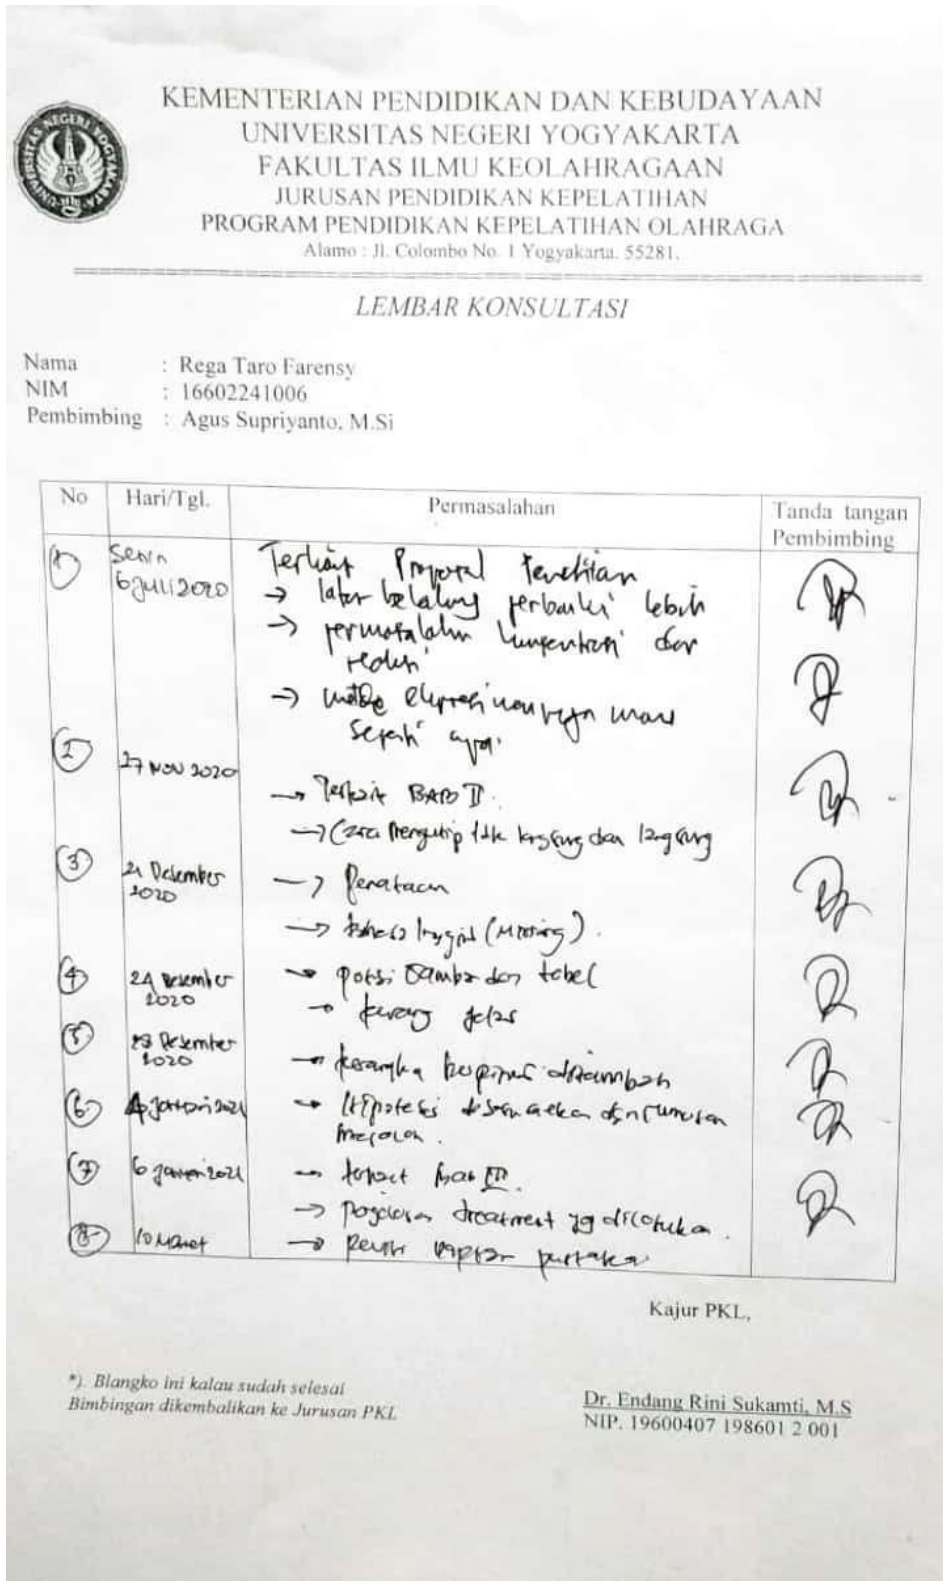 UNIVERSITAS NEGERI YOGYAKARTA
KEMENTERIAN PENDIDIKAN DAN KEBUDAYAAN
UNIVERSITAS NEGERI YOGYAKARTA
FAKULTAS ILMU KEOLAHRAGAAN
JURUSAN PENDIDIKAN KEPELATIHAN
PROGRAM PENDIDIKAN KEPELATIHAN OLAHRAGA
Alamo : Jl. Colombo No. 1 Yogyakarta. 55281.
LEMBAR KONSULTASI
Nama : Rega Taro Farensy
NIM : 16602241006
Pembimbing : Agus Supriyanto, M.Si
No Hari/Tgl. Permasalahan Tanda tangan Pembimbing
1 Senin 6 Juli 2020 Terkait Proposal Penelitian
→ latar belakang perbaiki lebih
→ permasalahn konsentrasi dan
→
seperti apa.
2 27 NOV 2020
→ Terkait BAB II.
→ Cara mengutip tdk langsung dan langsung
3 21 Desember 2020 → Penataan
→ (Miring).
4 24 Desember 2020 → posisi Gambar dan tabel
→ kurang jelas
5 28 Desember 2020
→ kerangka berpikir ditambah
6 4 Januari 2021 → Hipotesis disesuaikan dgn rumusan
masalah.
7 6 Januari 2021 → terkait Bab III.
→ treatment yg dilakukan.
8 10 Maret → Revisi Daftar pustaka
Kajur PKL,
*). Blangko ini kalau sudah selesai
Bimbingan dikembalikan ke Jurusan PKL
Dr. Endang Rini Sukamti, M.S
NIP. 19600407 198601 2 001